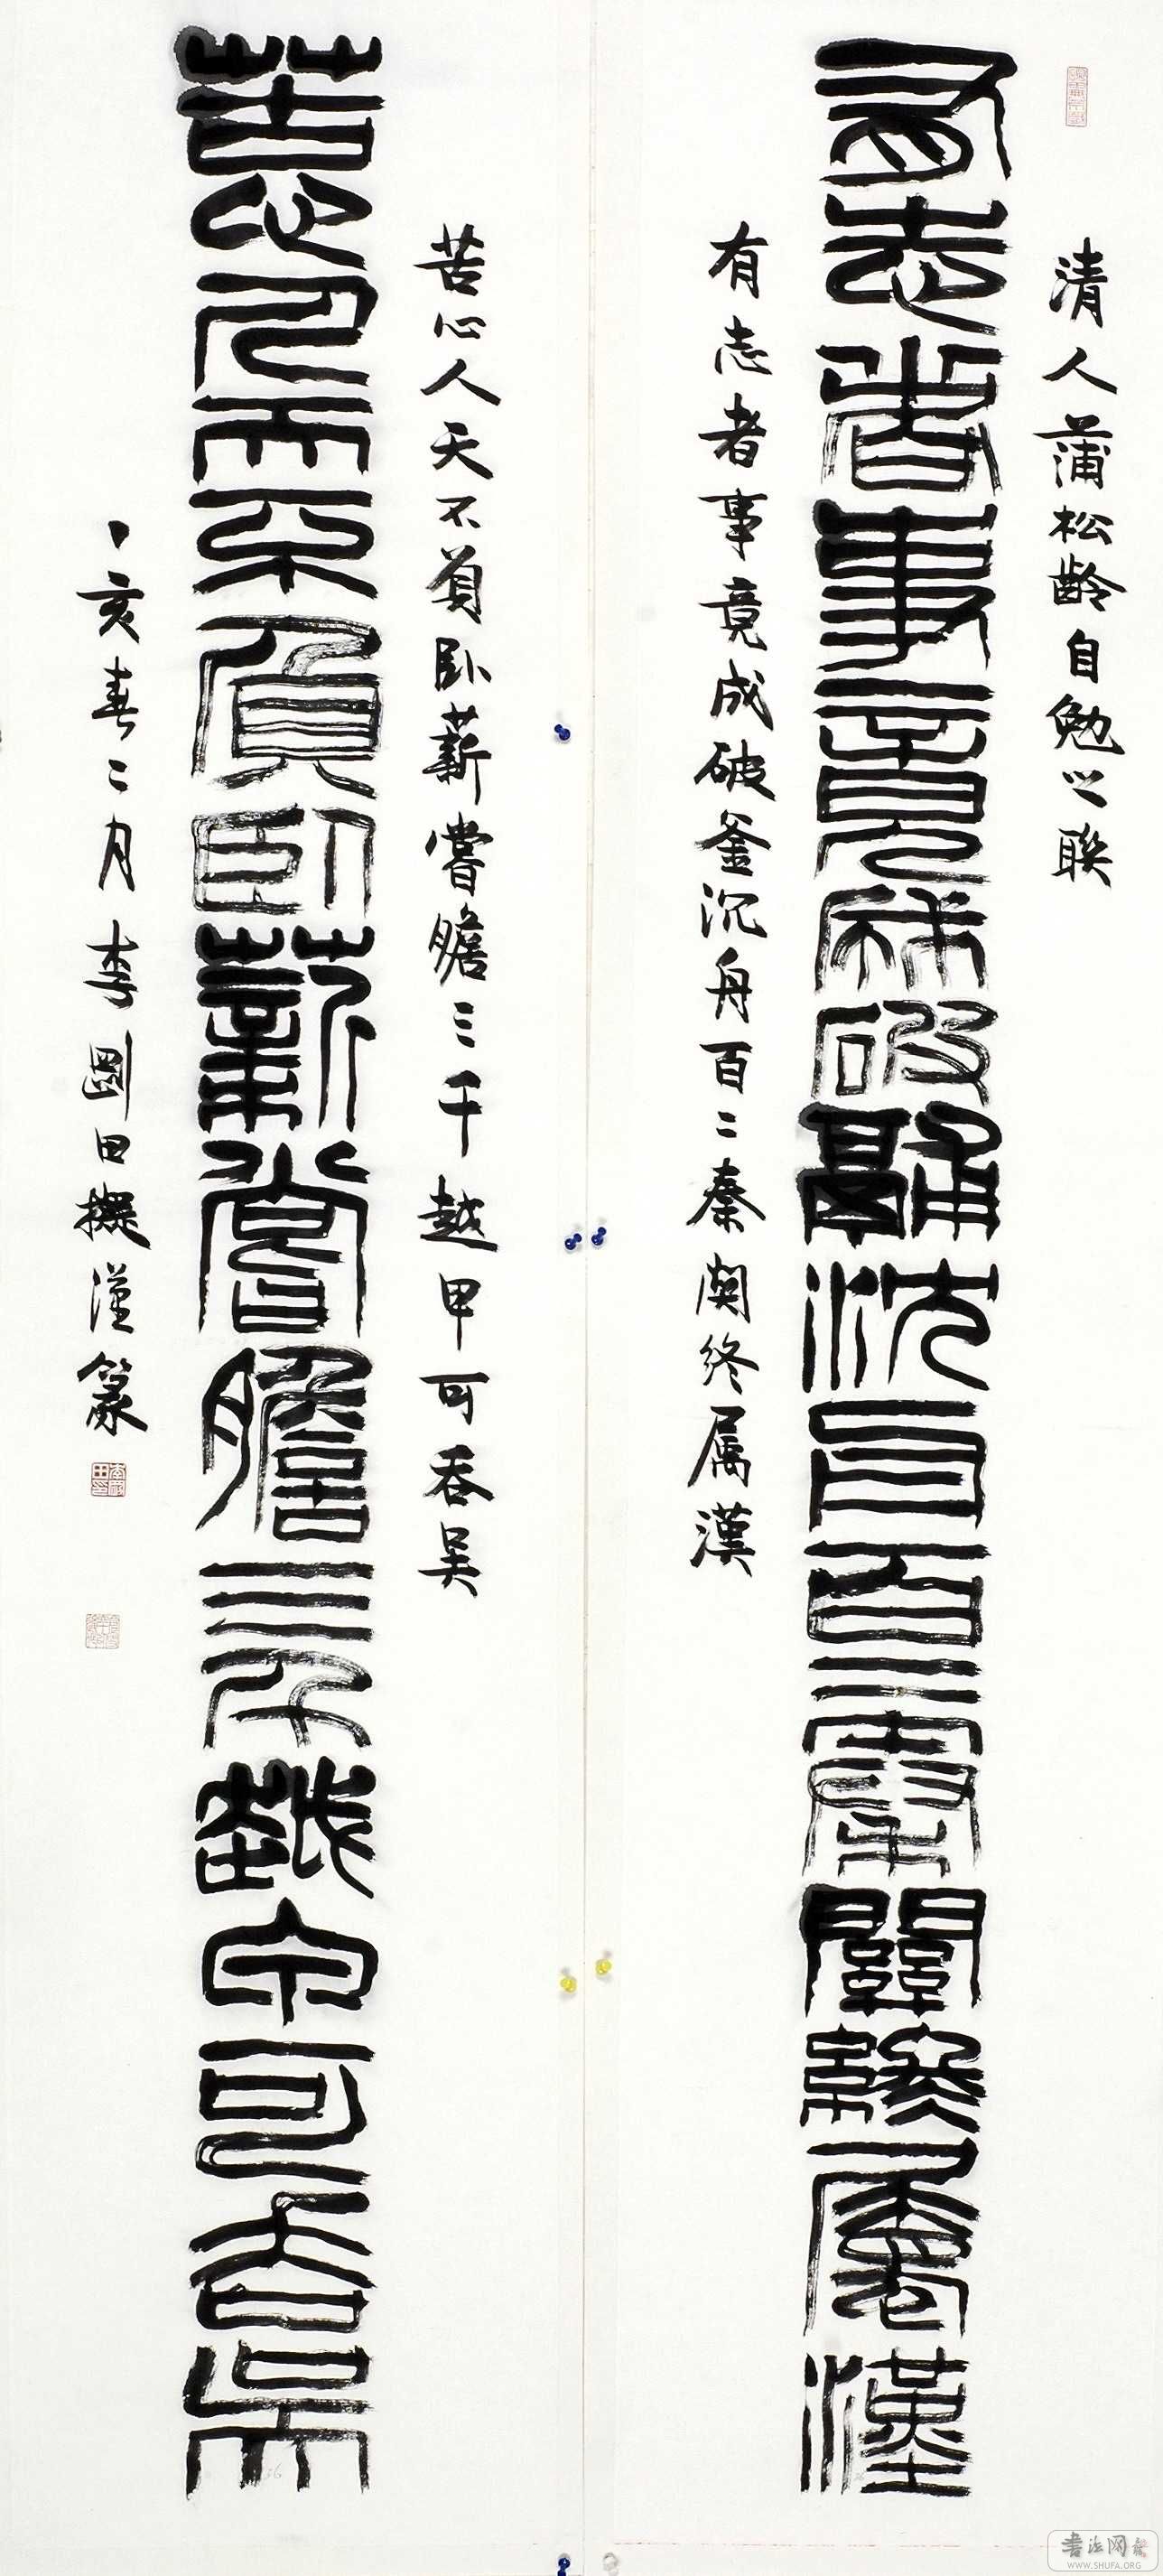 清人蒲松龄自勉之联
有志者事竟成破釜沉舟百二秦関终属漢
有志者事竟成破釜沈舟百二秦關終屬漢
苦心人天不負卧薪嘗膽三千越甲可吞吴
苦心人天不負臥薪嘗膽三千越甲可吞吳
丁亥春二月李剛田擬漢篆
书法网
WWW.SHUFA.ORG